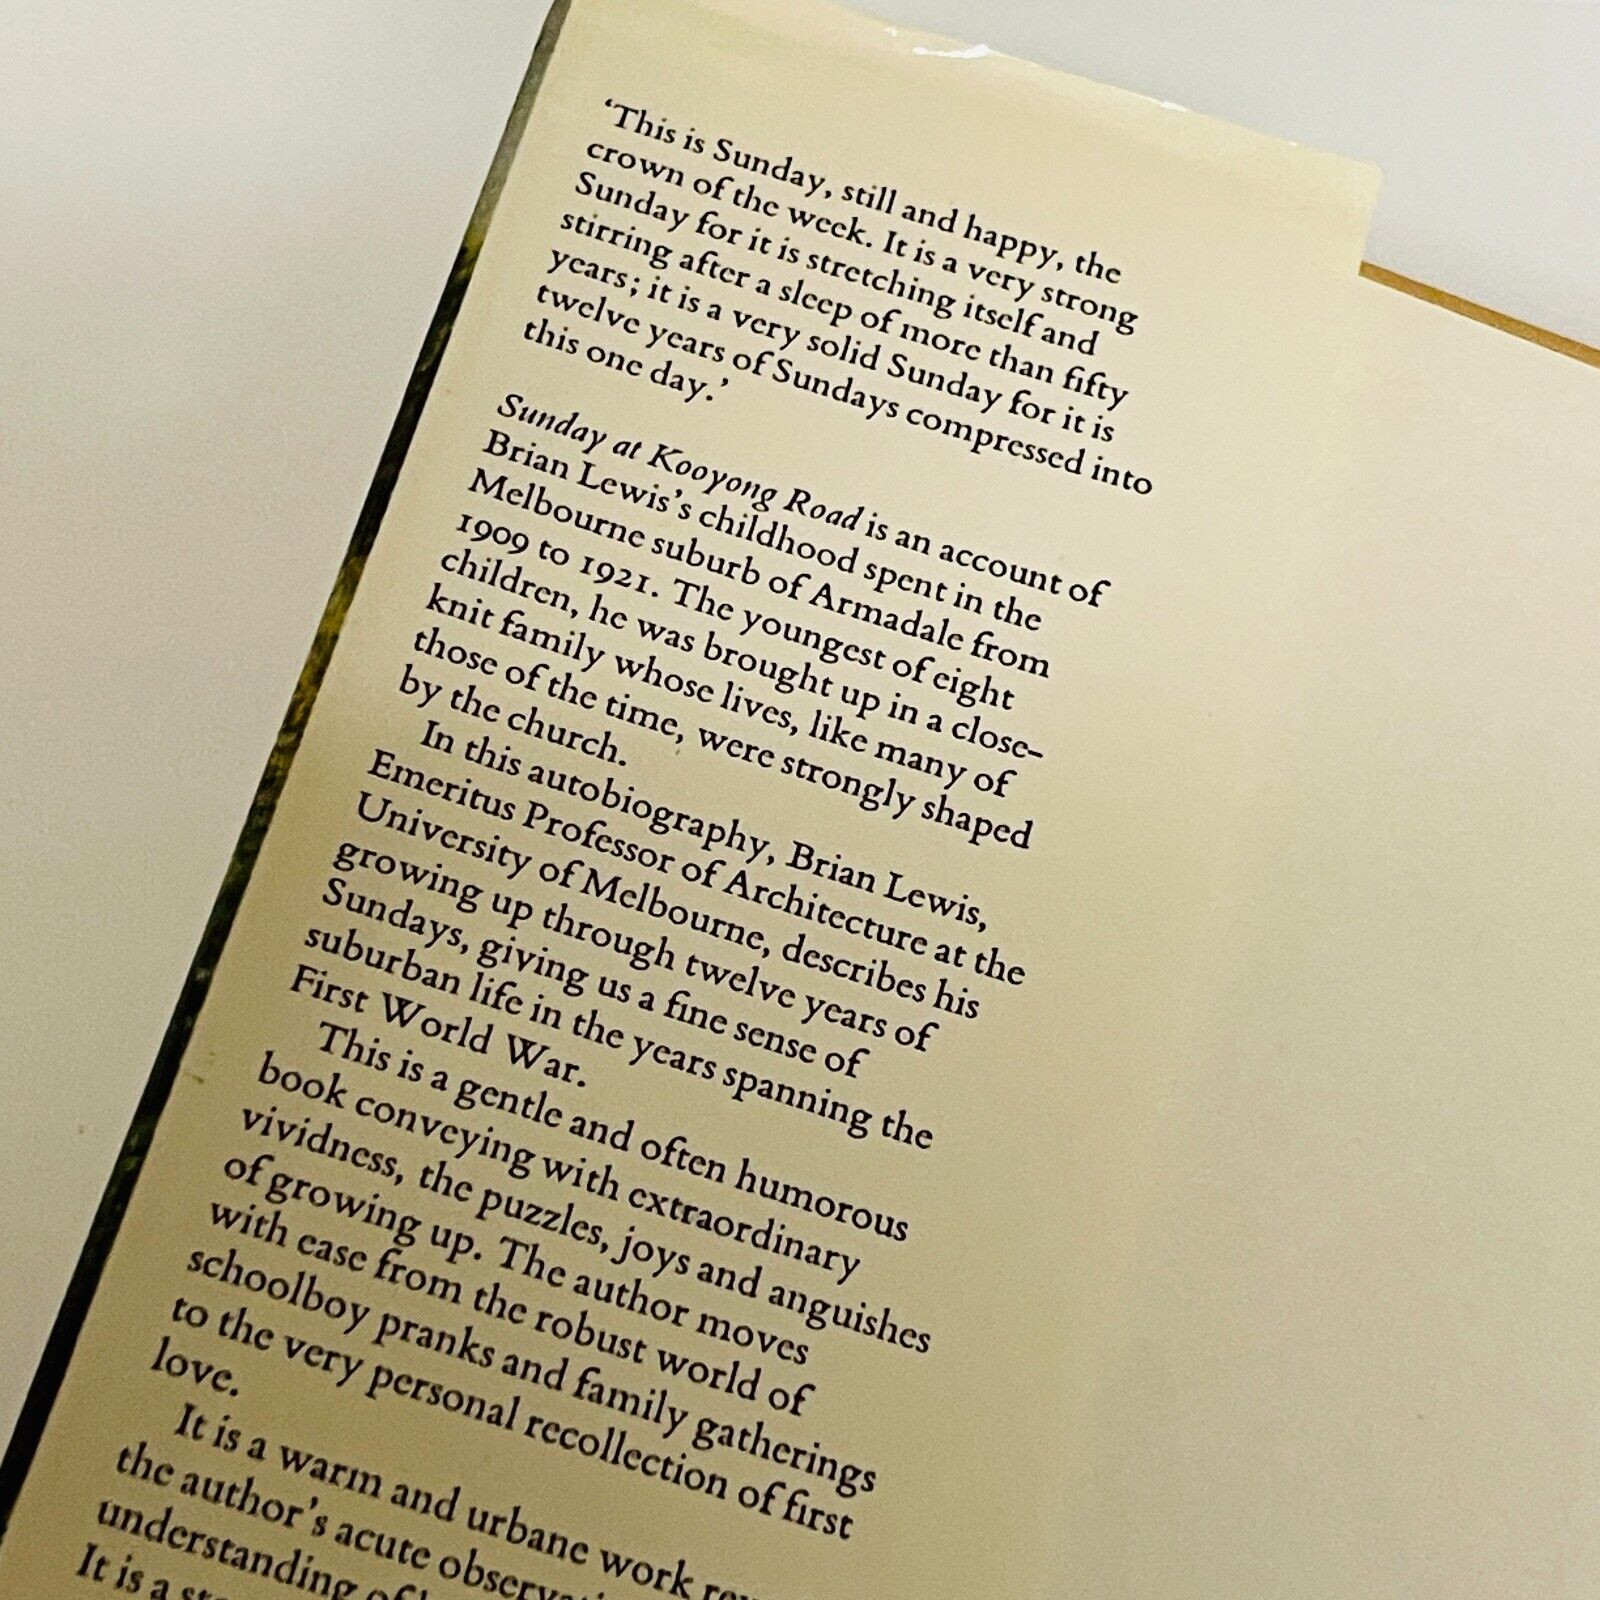 ‘This is Sunday, still and happy, the
crown of the week. It is a very strong
Sunday for it is stretching itself and
stirring after a sleep of more than fifty
years; it is a very solid Sunday for it is
twelve years of Sundays compressed into
this one day.’
Sunday at Kooyong Road is an account of
Brian Lewis’s childhood spent in the
Melbourne suburb of Armadale from
1909 to 1921. The youngest of eight
children, he was brought up in a close-
knit family whose lives, like many of
those of the time, were strongly shaped
by the church.
In this autobiography, Brian Lewis,
Emeritus Professor of Architecture at the
University of Melbourne, describes his
growing up through twelve years of
Sundays, giving us a fine sense of
suburban life in the years spanning the
First World War.
This is a gentle and often humorous
book conveying with extraordinary
vividness, the puzzles, joys and anguishes
of growing up. The author moves
with ease from the robust world of
schoolboy pranks and family gatherings
to the very personal recollection of first
love.
It is a warm and urbane work
the author’s acute
understanding of
It is a